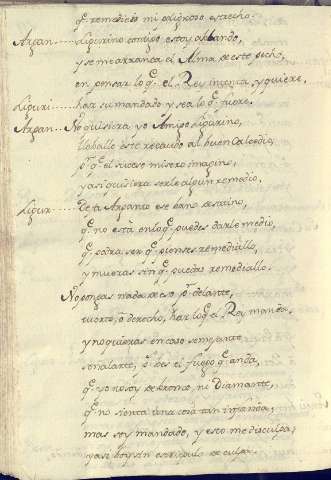 q̃. remedieis mi peligroso estrecho.
Arpan.... Lipurino contigo estoy ablando,
y se me arranca el Alma de este pecho,
en pensar lo q̃. el Rey intenta, y quiere,
Lipuri.... haz su mandado y sea lo q̃. fuere.
Arpan.... No quisiera yo Amigo Lipurino,
llevalle este recaudo al buen Calcedio,
p.r q̃. el sucesso misero imagino,
y assi quisiera serle algun remedio,
Lipur.... Deja Arpanto ese vano desatino,
q̃. no está en lo q̃. puedes darle medio,
q̃. podra ser q̃. pienses remediallo,
y mueras sin q̃. puedas remediallo.
No pongas nada de eso p.r delante,
tuerto, o derecho, haz lo q̃. el Rey manda,
y no quieras en caso semejante
señalarte, p.s ves el fuego q̃. anda,
q̃. yo no soy de bronce, ni Diamante,
q̃. no sienta una cosa tan infanda,
mas soy mandado, y esto me disculpa,
y assi voy sin escrupulo de culpa.